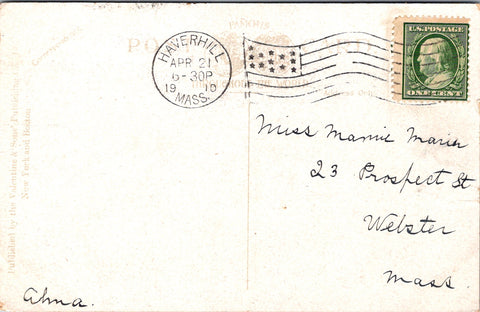 POST CARD
HAVERHILL
APR 21
6-30P
1910
MASS.
U.S. POSTAGE
ONE CENT
Miss Mamie Marier
23 Prospect St
Webster
Mass.
Alma.
Published by the Valentine & Sons'
New York and Boston.